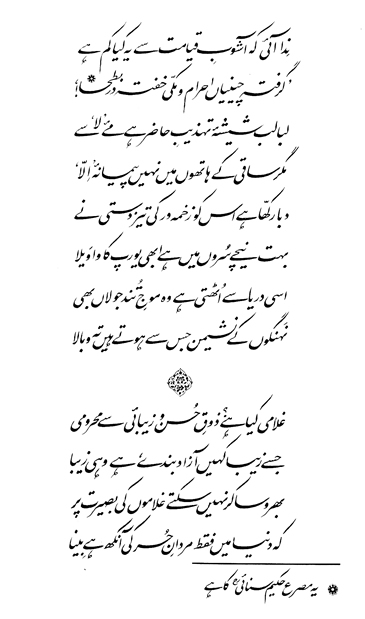 ندا آئی کہ آشوبِ قیامت سے یہ کیا کم ہے
'گرفتہ چینیاں احرام و مکی خفتہ در بطحا'! *
لبالب شیشۂ تہذیبِ حاضر ہے مئے 'لا' سے
مگر ساقی کے ہاتھوں میں نہیں پیمانۂ 'اِلّا'
دبا رکھا ہے اس کو زخمہ ور کی تیز دستی نے
بہت نیچے سُروں میں ہے ابھی یورپ کا واویلا
اسی دریا سے اُٹھتی ہے وہ موجِ تُند جولاں بھی
نہنگوں کے نشیمن جس سے ہوتے ہیں تہ و بالا
غلامی کیا ہے؟ ذوقِ حُسن و زیبائی سے محرومی
جسے زیبا کہیں آزاد بندے ہے وہی زیبا
بھروسا کر نہیں سکتے غلاموں کی بصیرت پر
کہ دنیا میں فقط مردانِ حُر کی آنکھ ہے بینا
* یہ مصرع حکیم سنائیؒ کا ہے